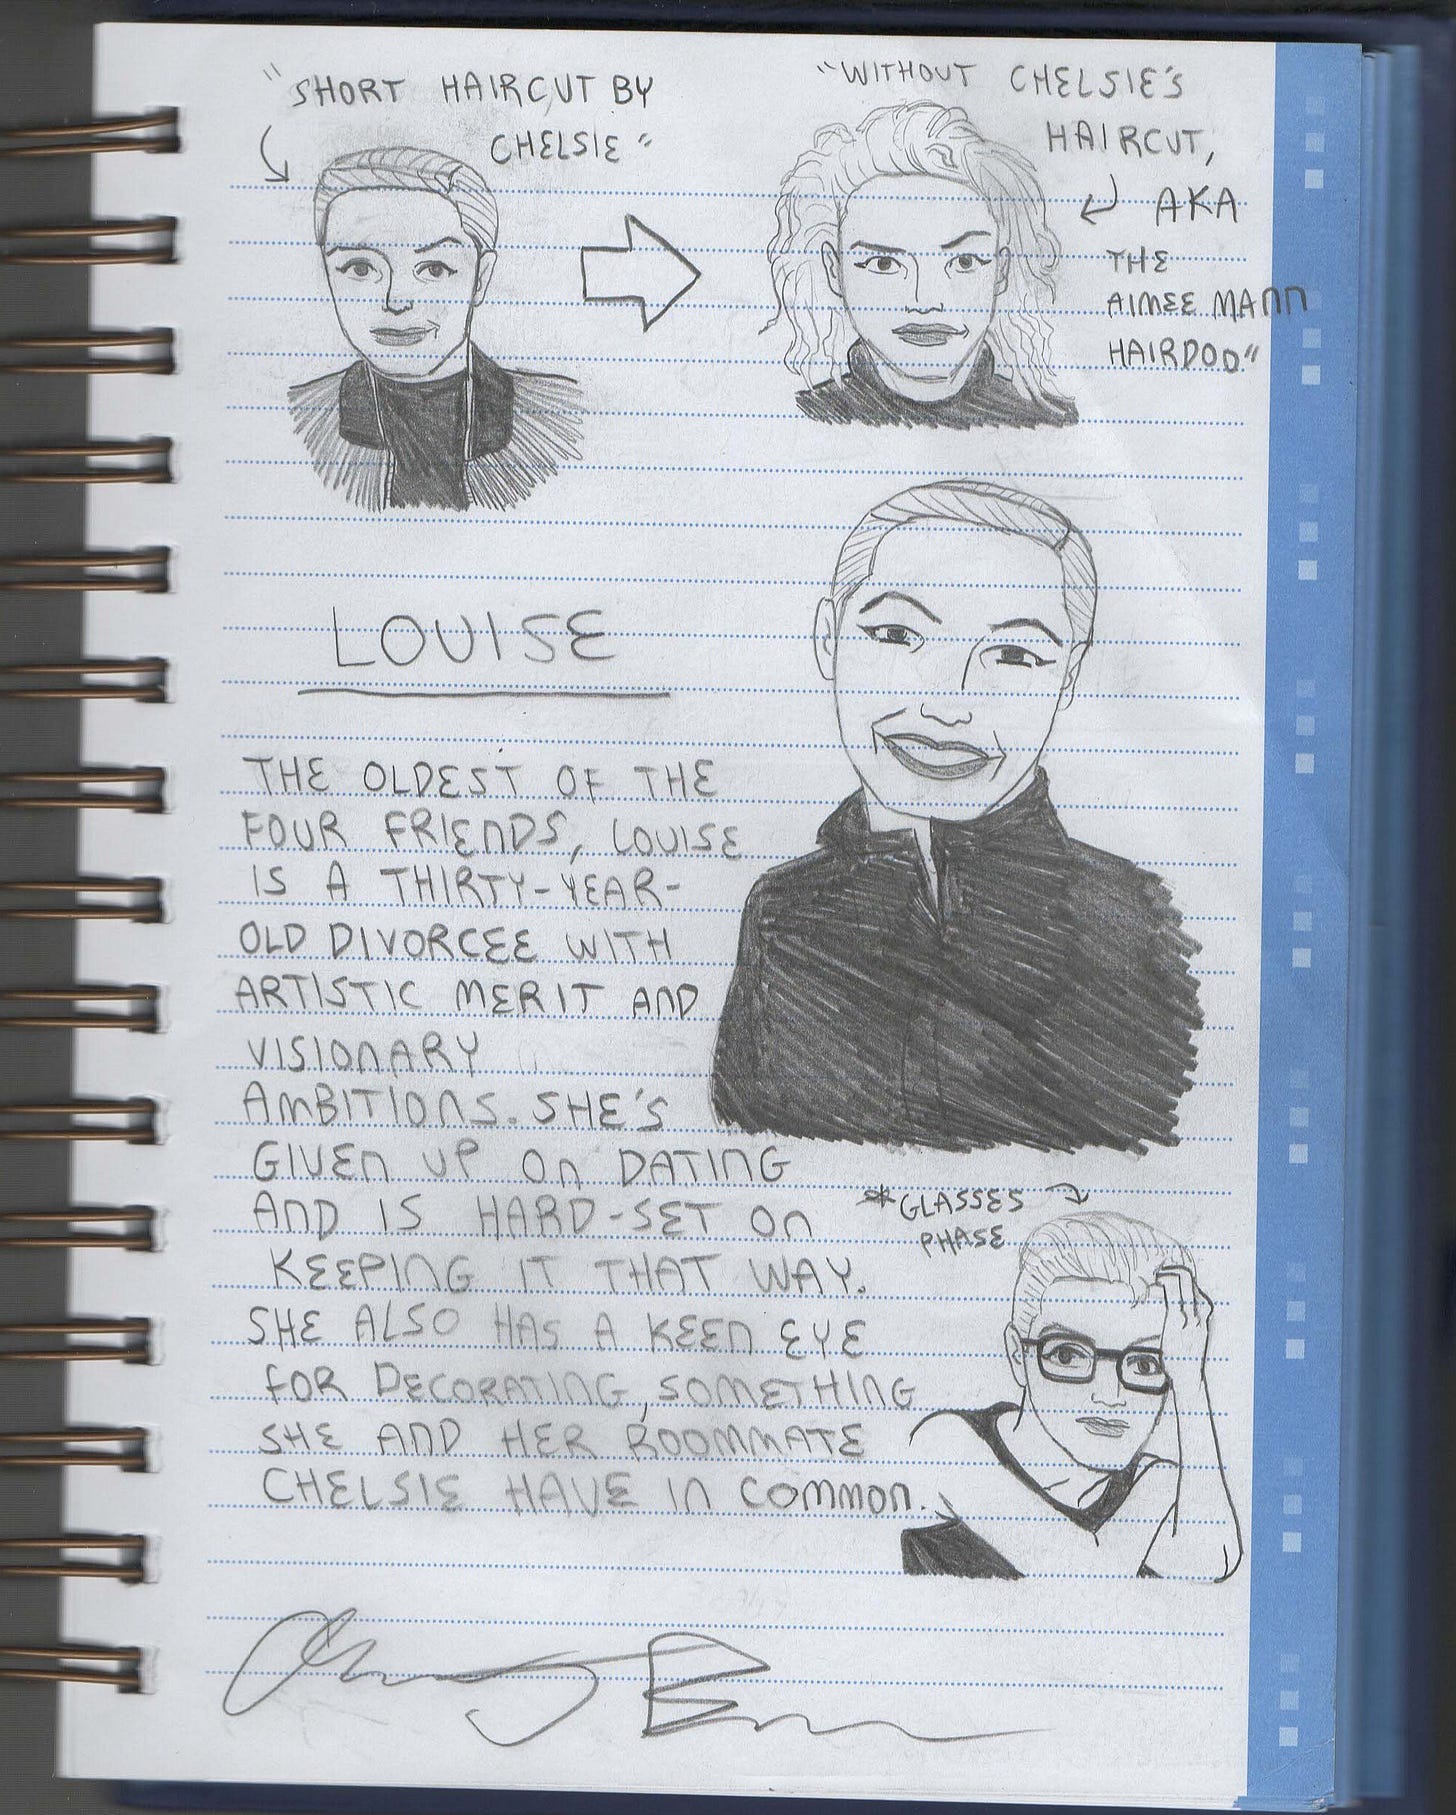 "SHORT HAIRCUT BY
CHELSIE"
"WITHOUT CHELSIE'S
HAIRCUT,
AKA
THE
AIMEE MANN
HAIRDOO"
LOUISE
THE OLDEST OF THE
FOUR FRIENDS, LOUISE
IS A THIRTY-YEAR-
OLD DIVORCEE WITH
ARTISTIC MERIT AND
VISIONARY
AMBITIONS. SHE'S
GIVEN UP ON DATING
AND IS HARD-SET ON
KEEPING IT THAT WAY.
SHE ALSO HAS A KEEN EYE
FOR DECORATING, SOMETHING
SHE AND HER ROOMMATE
CHELSIE HAVE IN COMMON.
*GLASSES
PHASE